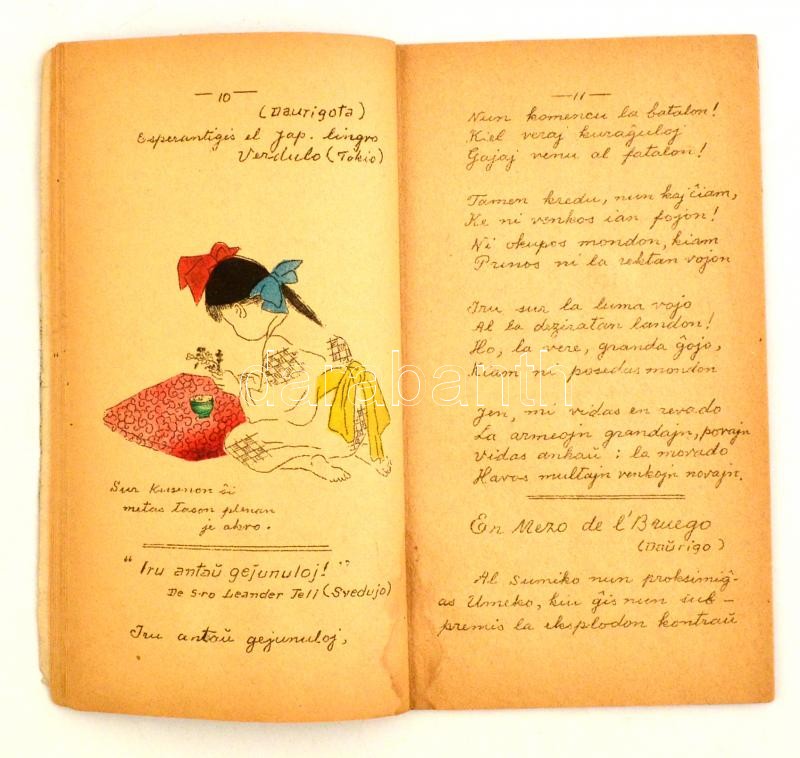 —10—
(Daurigota)
Esperantiĝis el Jap. lingvo
Verdulo (Tokio)
Sur kusenon ŝi
metas tason plenan
je akvo.
"Iru antaŭ gejunuloj!"
De S-ro Leander Tell (Svedujo)
Iru antaŭ gejunuloj,
—11—
Nun komencu la batalon!
Kiel veraj kuraĝuloj
Gajaj venu al fatalon!
Tamen kredu, nun kaj ĉiam,
Ke ni venkos ian fojon!
Ni okupos mondon, kiam
Prenos ni la rektan vojon
Iru sur la luma vojo
Al la deziratan landon!
Ho, la vere, granda ĝojo,
Kiam ni posedas mondon
Jen, mi vidas en revado
La armeojn grandajn, povajn
Vidas ankaŭ: la movado
Havos multajn venkojn novajn.
En Mezo de l'Bruego
(Daŭrigo)
Al Sumiko nun proksimiĝ-
as Umeko, kiu ĝis nun sub-
premis la eksplodon kontraŭ
darabanth